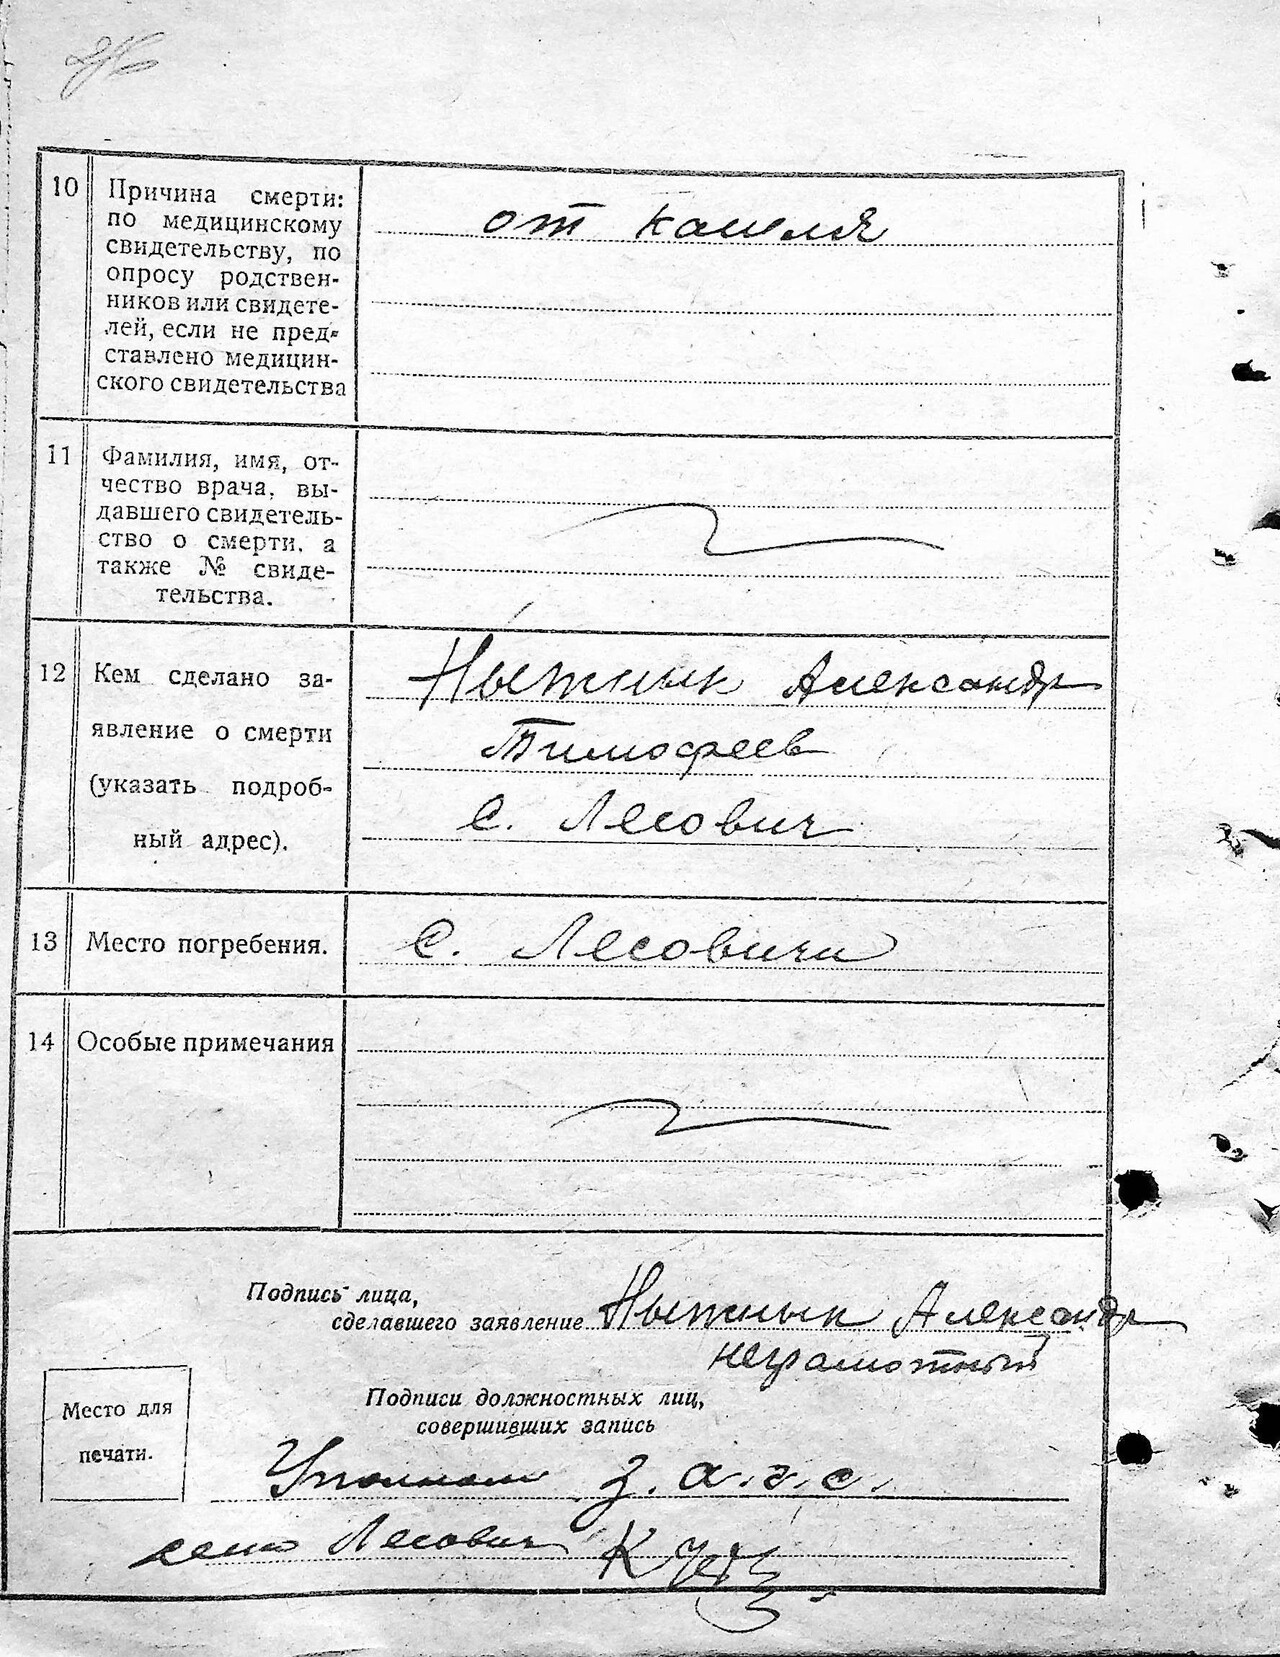 10 Причина смерти:
по медицинскому
свидетельству, по
опросу родствен-
ников или свидете-
лей, если не пред-
ставлено медицин-
ского свидетельства
от кашля
11 Фамилия, имя, от-
чество врача, вы-
давшего свидетель-
ство о смерти, а
также № свиде-
тельства.
12 Кем сделано за-
явление о смерти
(указать подроб-
ный адрес).
Ныжнык Александр
Тимофеев
с. Лесович
13 Место погребения.
с. Лесовичи
14 Особые примечания
Подпись лица,
сделавшего заявление Ныжнык Александр
неграмотный
Подписи должностных лиц,
совершивших запись
Место для
печати.
з. а. г. с.
село Лесович